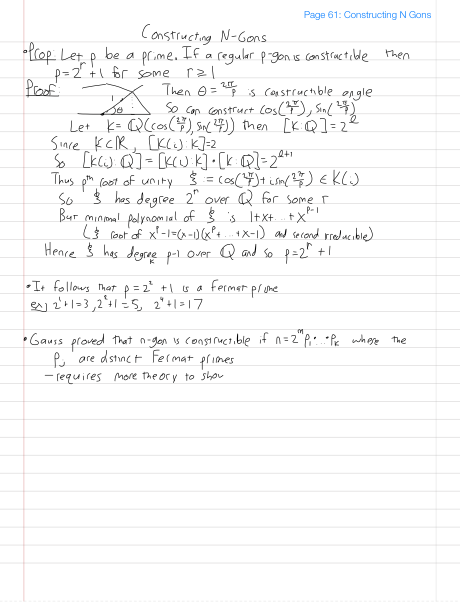 Page 61: Constructing N Gons
Constructing N-Gons
• Prop: Let p be a prime. If a regular p-gon is constructible then
p = 2^r + 1 for some r ≥ 1
Proof: Then θ = 2π/p is constructible angle
1 θ
So can construct cos(2π/p), sin(2π/p)
Let K = ℚ(cos(2π/p), sin(2π/p)) then [K:ℚ] = 2^l
Since K⊂ℝ, [K(i):K]=2
So [K(i):ℚ] = [K(i):K]·[K:ℚ] = 2^{l+1}
Thus p^th root of unity ξ := cos(2π/p) + i sin(2π/p) ∈ K(i)
So ξ has degree 2^r over ℚ for some r
But minimal polynomial of ξ is 1+x+...+x^{p-1}
(ξ root of x^p-1=(x-1)(x^p+...+x-1) and second irreducible)
Hence ξ has degree p-1 over ℚ and so p = 2^r + 1
• It follows that p = 2^{2^k} + 1 is a Fermat prime
ex) 2^1+1=3, 2^2+1=5, 2^4+1=17
• Gauss proved that n-gon is constructible if n=2^m p_1·...·p_k where the
p_i are distinct Fermat primes
- requires more theory to show